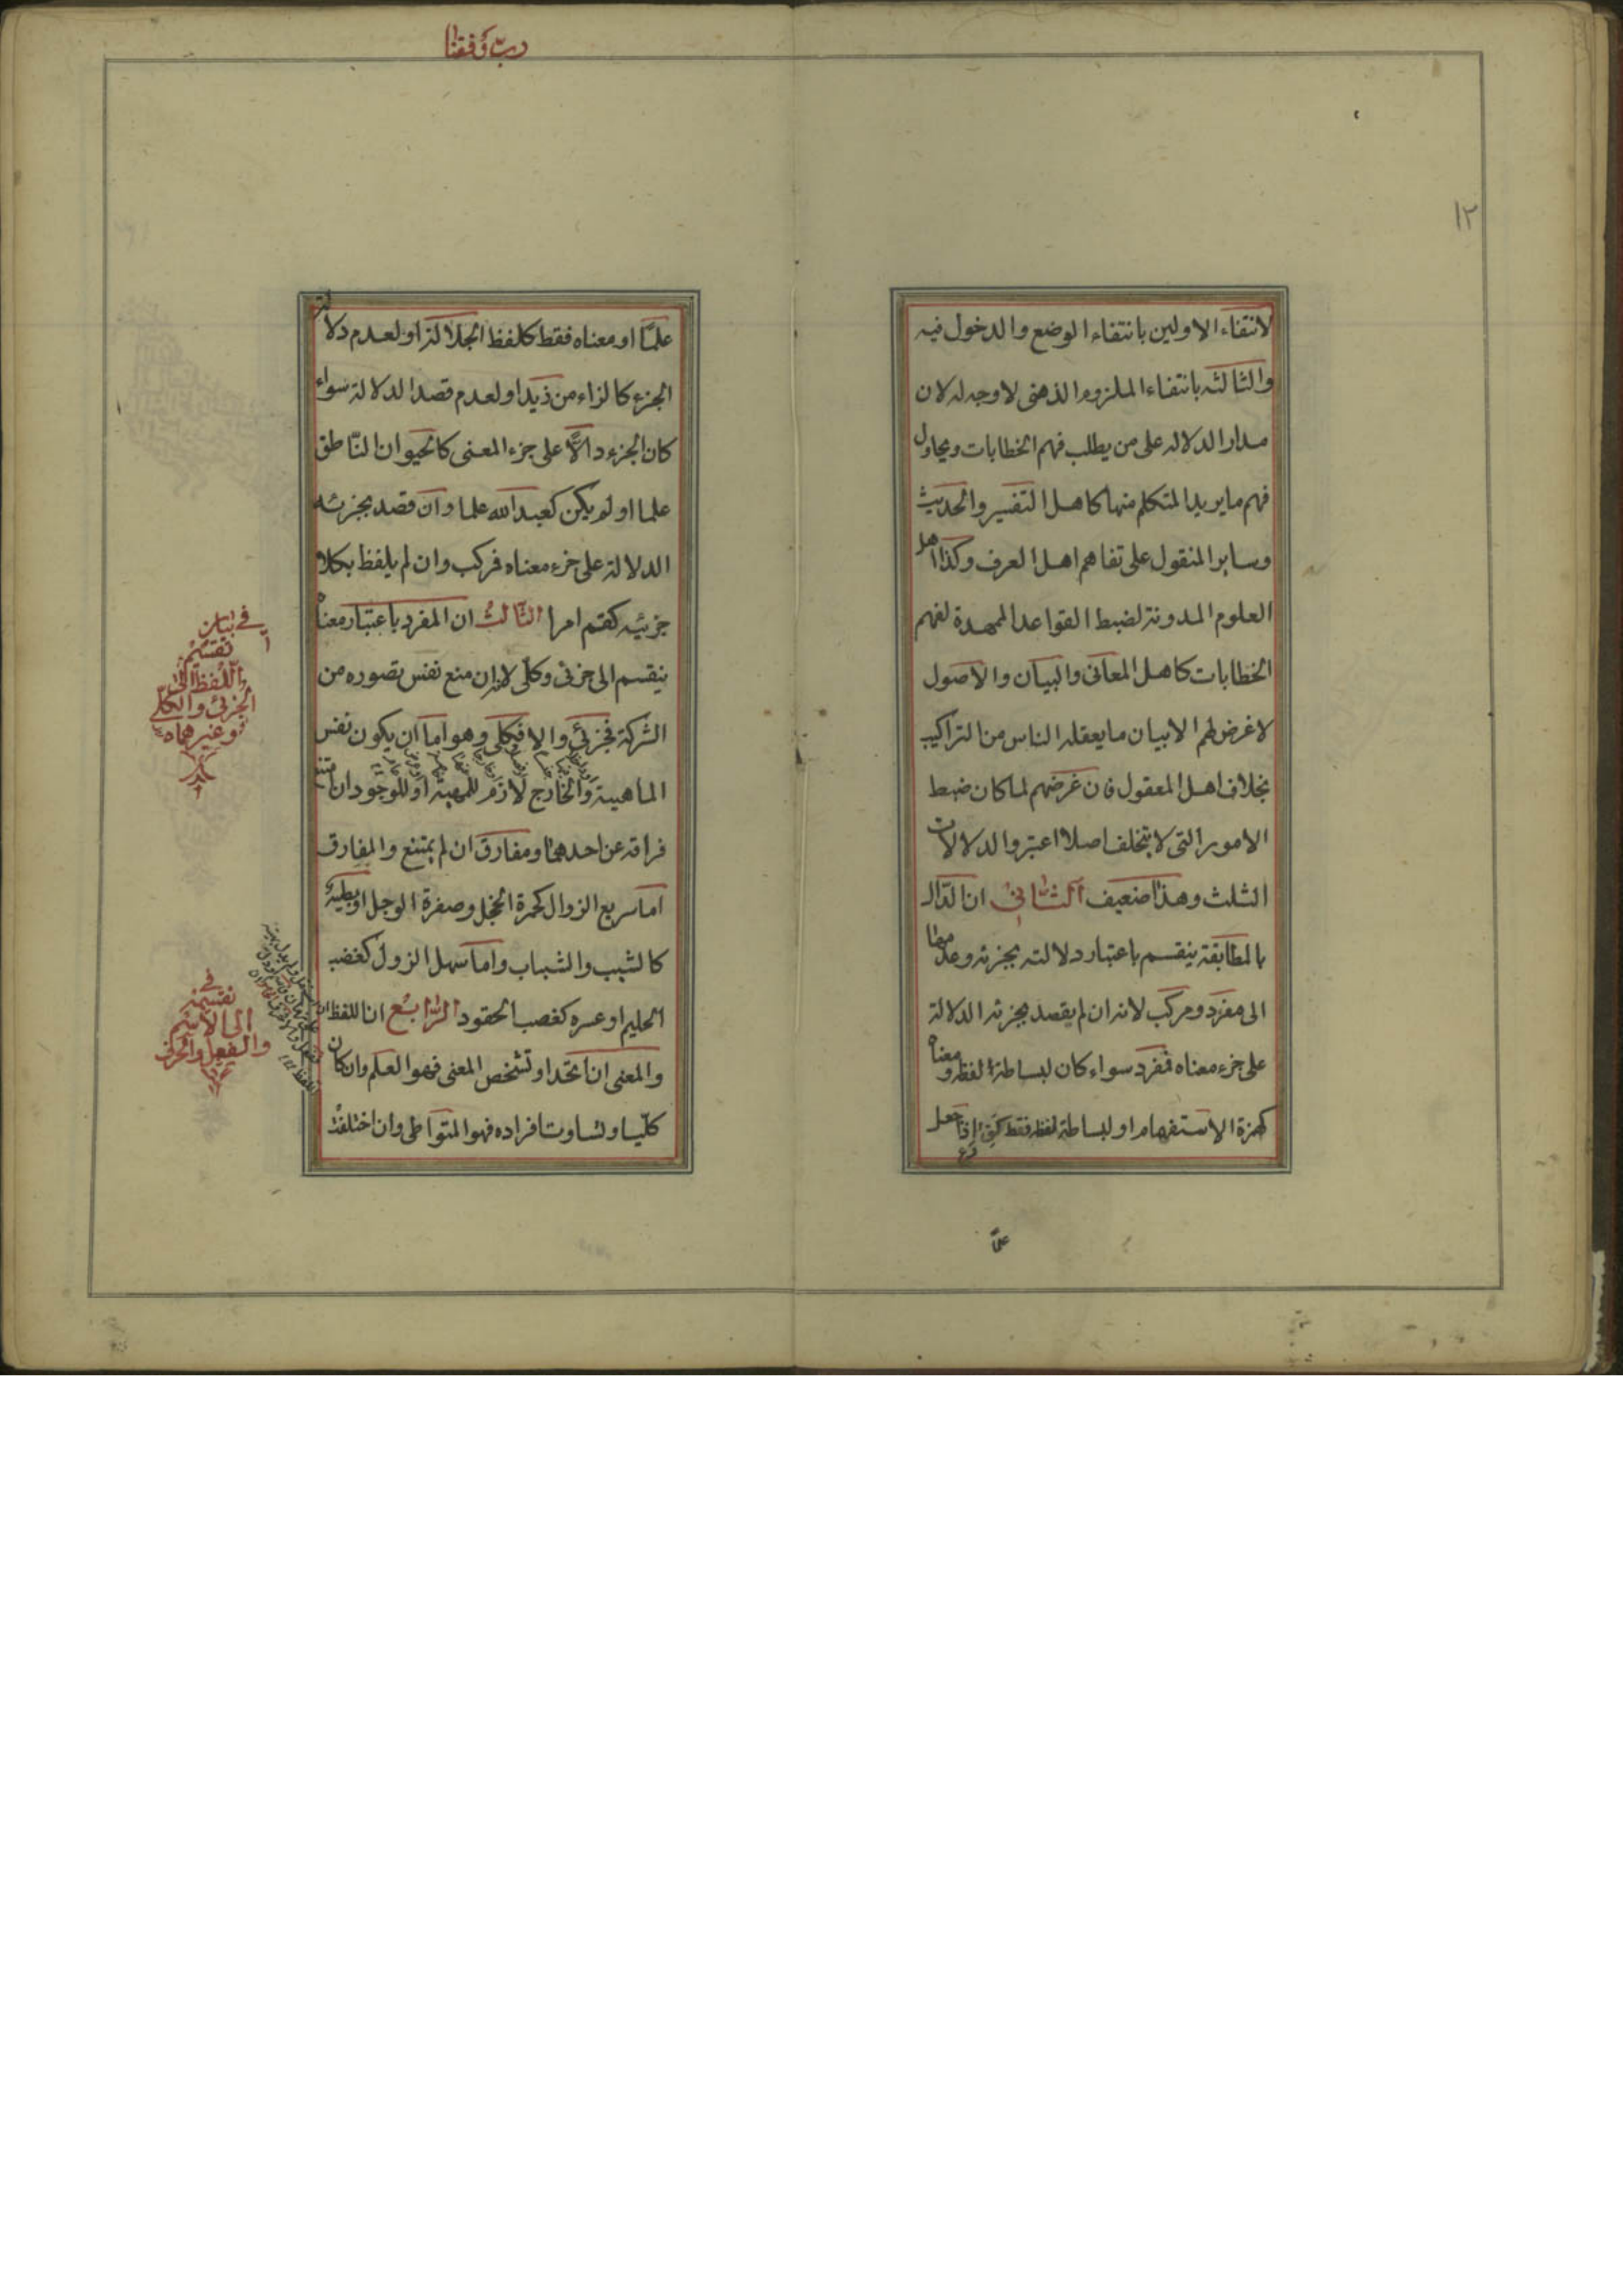 ١٢
لانتفاء الاولين بانتفاء الوضع والدخول فيه
والثالثه بانتفاء الملزوم الذهنى لا وجه له لان
مدار الدلاله على من يطلب فهم الخطابات ويحاول
فهم ما يريد المتكلم منها كاهل التفسير والحديث
وساير المنقول على تفاهم اهل العرف وكذا اهل
العلوم المدونة لضبط القواعد الممهدة لفهم
الخطابات كاهل المعانى والبيان والاصول
لا غرض لهم الا بيان ما يعقله الناس من التراكيب
بخلاف اهل المعقول فان غرضهم لما كان ضبط
الامور التى لا يتخلف اصلا اعتبروا الدلالات
الثلث وهذا ضعيف الثانى ان الدّال
بالمطابقة ينقسم باعتبار دلالته بجزئه وعدمها
الى مفرد ومركب لانه ان لم يقصد بجزئه الدلالة
على جزء معناه فمفرد سواء كان لبساطة لفظه ومعناه
كهمزة الاستفهام او لبساطة لفظه فقط اذا جعل
علمًا
ربّ وفقنا
علمًا او معناه فقط كلفظ الجلالة او لعدم دلالة
الجزء كالزاء من زيد او لعدم قصد الدلالة سواء
كان الجزء دالًّا على جزء المعنى كالحيوان النّاطق
علما او لم يكن كعبد الله علما وان قصد بجزئه
الدلالة على جزء معناه فمركب وان لم يلفظ بكلا
جزئيه كقم امرا الثالث ان المفرد باعتبار معناه
ينقسم الى جزئى وكلّى لانه ان منع نفس تصوره من
الشركة فجزئى والا فكلى وهو اما ان يكون نفس
الماهية والخارج لازم للمهية او للوجود ان امتنع
فراقه عن احدهما ومفارق ان لم يمتنع والمفارق
اما سريع الزوال كحمرة الخجل وصفرة الوجل او بطيئه
كالشيب والشباب واما سهل الزول كغضب
الحليم او عسره كغصب الحقود الرّابع ان اللفظ
والمعنى ان اتحدا وتشخص المعنى فهو العلم وان كان
كليّا وتساوت افراده فهو المتواطى وان اختلفت
فى بيان
تقسيم
اللفظ الى
الجزئى والكلى
وغيرهما
فى
تقسيمه
الى الاسم
والفعل والحرف